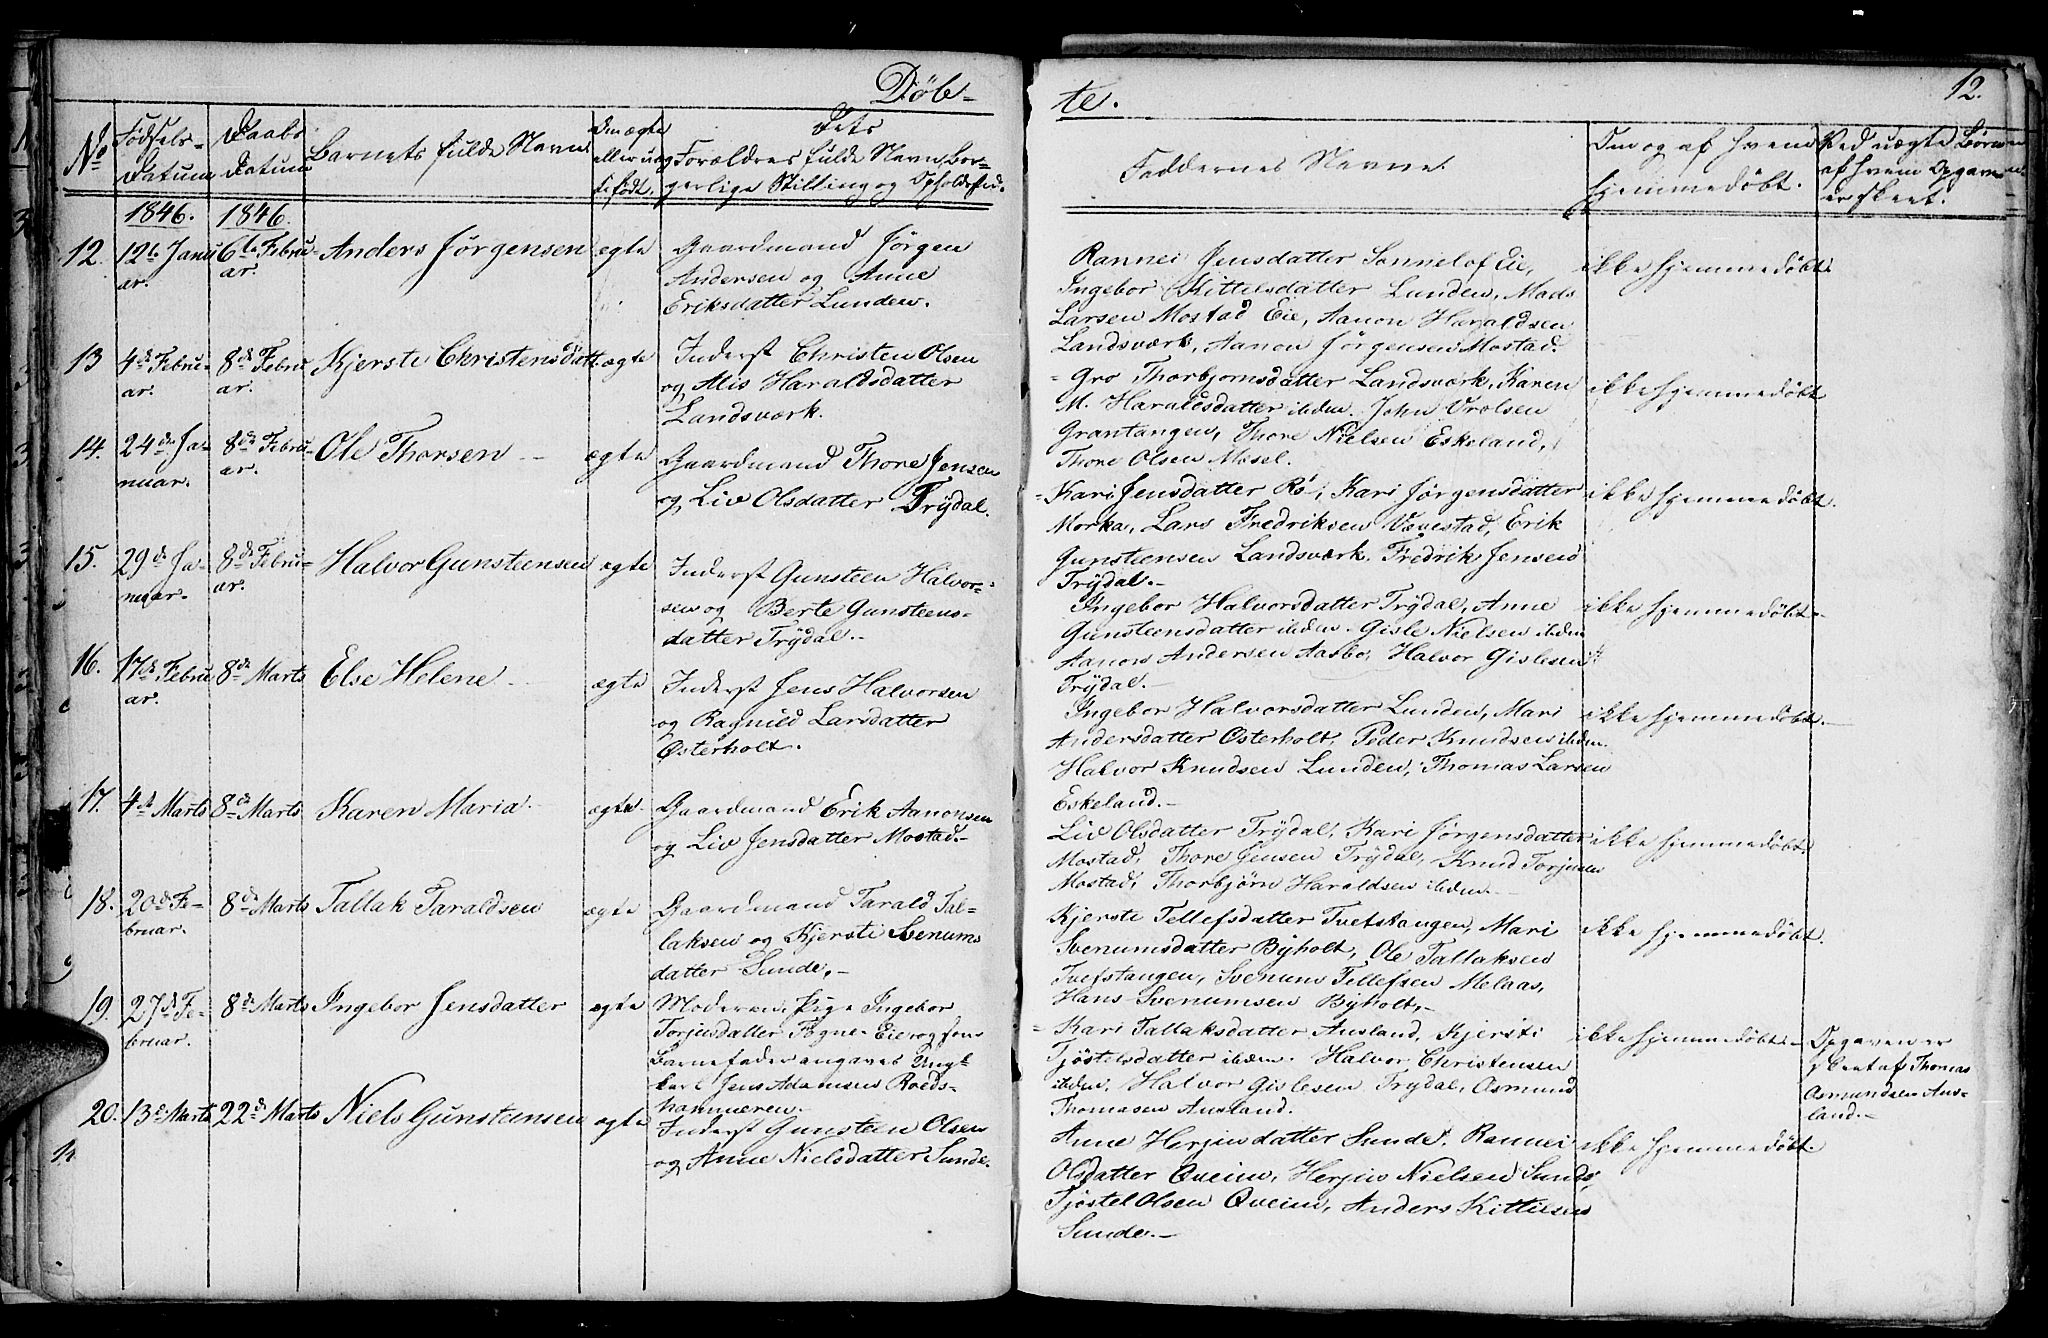 Døb=
te.
12.
No
Fødsels-
Datum
Daabs
Datum
Barnets fulde Navn
Om ægte
eller uæg
te født.
Dets
Forældres fulde Navn, Bor-
gerlige Stilling og Opholdssted.
Faddernes Navne.
Om og af hvem
hjemmedøbt.
Ved uægte Børn
af hvem Opgaven
er skeet.
1846.
1846.
12.
12te Janu
ar.
6te Febru-
ar.
Anders Jørgensen
ægte
Gaardmand Jørgen
Andersen og Anne
Eriksdatter Lunden.
Rannei Jensdatter Sønnelof Eie,
Ingebor Kittelsdatter Lunden, Mads
Larsen Mostad Eie, Aanon Haraldsen
Landsværk, Aanon Jørgensen Mostad.
ikke hjemmedøbt.
13
4de Febru-
ar.
8de Febru
ar.
Kjerste Christensdatt.
ægte
Inderst Christen Olsen
og Alis Haraldsdatter
Landsværk.
= Gro Thorbjornsdatter Landsværk, Karen
M. Haraldsdatter ibiden. John Vrolsen
Grantangen, Thore Nielsen Eskeland,
Thore Olsen Mesel.
ikke hjemmedøbt
14.
24de Ja-
nuar.
8de Febru-
ar.
Ole Thorsen
ægte
Gaardmand Thore Jensen
og Liv Olsdatter Trÿdal.
= Kari Jensdatter Rö-, Kari Jørgensdatter
Morka, Lars Fredriksen Vævestad, Erik
Gunsteensen Landsværk. Fredrik Jensen
Trÿdal.-
ikke hjemmedøbt.
15.
29de Ja-
nuar.
8de Febru-
ar.
Halvor Gunsteensen
ægte
Inderst Gunsteen Halvor-
sen og Berte Gunsteens-
datter Trÿdal.-
Ingebor Halvorsdatter Trÿdal, Anne
Gunsteensdatter ibiden. Gisle Nielsen ibiden
Aanon Andersen Aasbo, Halvor Gislesen
Trÿdal.-
ikke hjemmedøbt.
16.
17de Febru
ar.
8de Marts
Else Helene
ægte
Inderst Jens Halvorsen
og Ragnild Larsdatter
Østerholt.
Ingebor Halvorsdatter Lunden, Mari
Andersdatter Østerholt, Peder Knudsen ibiden.
Halvor Knudsen Lunden, Thomas Larsen
Eskeland.-
ikke hjemmedøbt.
17.
4de Marts
8de Marts
Karen Maria
ægte
Gaardmand Erik Aanonsen
og Liv Jensdatter Mostad.-
Liv Olsdatter Trÿdal, Kari Jørgensdatter
Mostad, Thore Jensen Trÿdal, Knud Torjusen
Mostad, Thorbjørn Haraldsen ibiden.-
ikke hjemmedøbt.
18.
20de Fe-
bruar.
8de Marts
Tallak Taraldsen
ægte
Gaardmand Tarald Tal-
laksen og Kjersti Svenums
datter Sunde,-
Kjerste Tellefsdatter Tvetstangen, Mari
Svenumsdatter Bÿholt, Ole Tallaksen
Tvetstangen, Svenum Tellefsen Melaas,
Hans Svenumsen Bÿholt,-
ikke hjemmedøbt.
19.
27de Fe-
bruar.
8de Marts
Ingebor Jensdatter
ægte
Moderen: Pige Ingebor
Torjusdatter Fogne Eie og som
Barnefader angaves Ung-
karl Jens Adamsen Roeds-
hammeren.
= Kari Tallaksdatter Ausland, Kjersti
Tjöstelsdatter ibiden. Halvor Christensen
ibiden, Halvor Gislesen Trÿdal, Osmund
Thomasen Ausland.
ikke hjemmedøbt.-
Opgaven er
skeet af Thomas
Osmundsen Aus-
land.-
20.
13de Marts
22de Marts
Niels Gunsteensen
ægte
Inderst Gunsteen Olsen
og Anne Nielsdatter Sunde.
Anne Herjusdatter Sunde. Rannei
Olsdatter Qveim, Herjus Nielsen Sunde,
Tjöstel Olsen Qveim, Anders Kittilsen
Sunde.-
ikke hjemmedøbt.